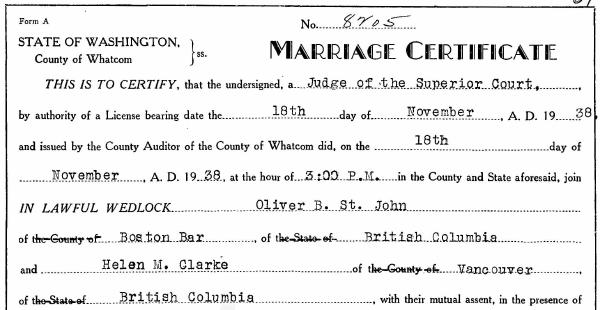 Form A
No. 8705
STATE OF WASHINGTON,
County of Whatcom } ss.
MARRIAGE CERTIFICATE
THIS IS TO CERTIFY, that the undersigned, a Judge of the Superior Court,
by authority of a License bearing date the 18th day of November, A. D. 19 38,
and issued by the County Auditor of the County of Whatcom did, on the 18th day of
November, A. D. 19 38, at the hour of 3:00 P.M. in the County and State aforesaid, join
IN LAWFUL WEDLOCK Oliver B. St. John
of the County of Boston Bar, of the State of British Columbia
and Helen M. Clarke of the County of Vancouver,
of the State of British Columbia, with their mutual assent, in the presence of